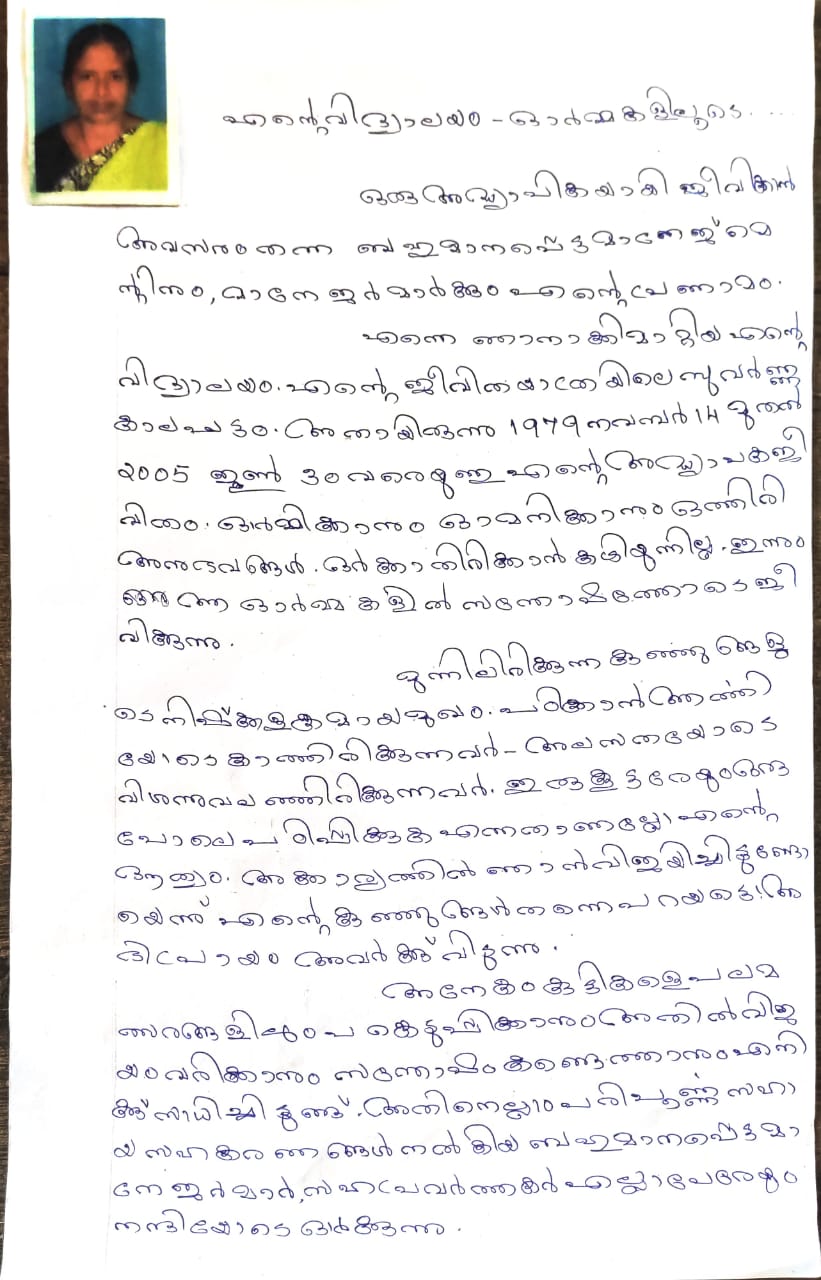 എന്റെവിദ്യാലയം - ഓർമ്മകളിലൂടെ.....
ഒരു അദ്ധ്യാപികയായി ജീവിക്കുവാൻ
അവസരം തന്ന ബഹുമാനപ്പെട്ട മാനേജ്മെ
ന്റിനും, മാനേജർമാർക്കും എന്റെ പ്രണാമം.
എന്നെ ഞാനാക്കിമാറ്റിയ എന്റെ
വിദ്യാലയം. എന്റെ ജീവിതയാത്രയിലെ സുവർണ്ണ
കാലഘട്ടം. അതായിരുന്നു 1979 നവമ്പർ 14 മുതൽ
2005 ജൂൺ 30 വരെയുള്ള എന്റെ അദ്ധ്യാപകജീ
വിതം. ഓർമ്മിക്കാനും ഓമനിക്കാനും ഒത്തിരി
അനുഭവങ്ങൾ. ഓർക്കാതിരിക്കാൻ കഴിയുന്നില്ല. ഇന്നും
ആ ഓർമ്മകളിൽ സന്തോഷത്തോടെ ജീ
വിക്കുന്നു.
മുന്നിലിരിക്കുന്ന കുഞ്ഞുങ്ങളു
ടെ നിഷ്ക്കളങ്കമായ മുഖം. പഠിക്കാൻ ആർത്തി
യോടെ കാത്തിരിക്കുന്നവർ - അലസതയോടെ
വിശന്നുവലഞ്ഞിരിക്കുന്നവർ. ഇരുകൂട്ടരേയും ഒരു
പോലെ പഠിപ്പിക്കുക എന്നതാണല്ലോ എന്റെ
ദൗത്യം. അക്കാര്യത്തിൽ ഞാൻ വിജയിച്ചിട്ടുണ്ടോ
യെന്ന് എന്റെ കുഞ്ഞുങ്ങൾ തന്നെ പറയട്ടെ! അ
ഭിപ്രായം അവർക്ക് വിടുന്നു.
അനേകം കുട്ടികളെ പല മ
ത്സരങ്ങളിലും പങ്കെടുപ്പിക്കാനും അതിൽ വിജ
യം വരിക്കാനും സന്തോഷം കണ്ടെത്താനും എനി
ക്ക് സാധിച്ചിട്ടുണ്ട്. അതിനെല്ലാം പരിപൂർണ്ണ സഹാ
യ സഹകരണങ്ങൾ നൽകിയ ബഹുമാനപ്പെട്ട മാ
നേജർമാർ, സഹപ്രവർത്തകർ എല്ലാപേരേയും
നന്ദിയോടെ ഓർക്കുന്നു.